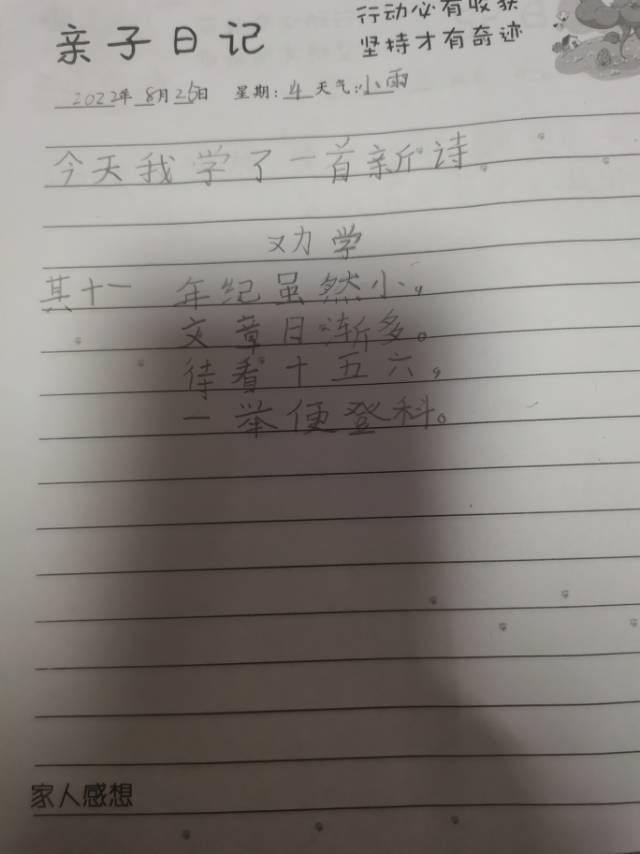 行动必有收获
亲子日记
坚持才有奇迹
2022年8月25日 星期:4天气:小雨
今天我学了一首新诗。
劝学
其十一 年纪虽然小,
文章日渐多。
待看十五六,
一举便登科。
家人感想